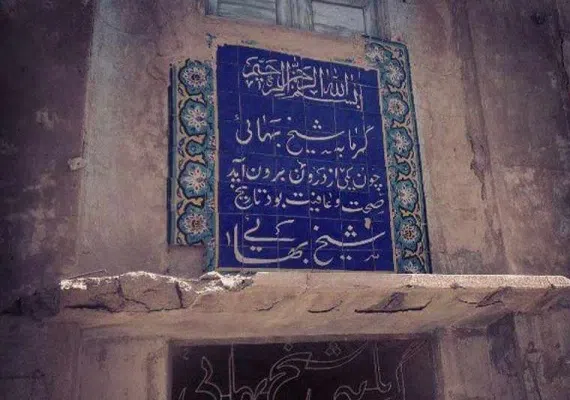 بسم الله الرحمن الرحیم
گرمابه شیخ بهائی
چون یکی از درون برون آید
صحت و عافیت بود تاریخ
شیخ بهایی
گرمابه شیخ بهایی